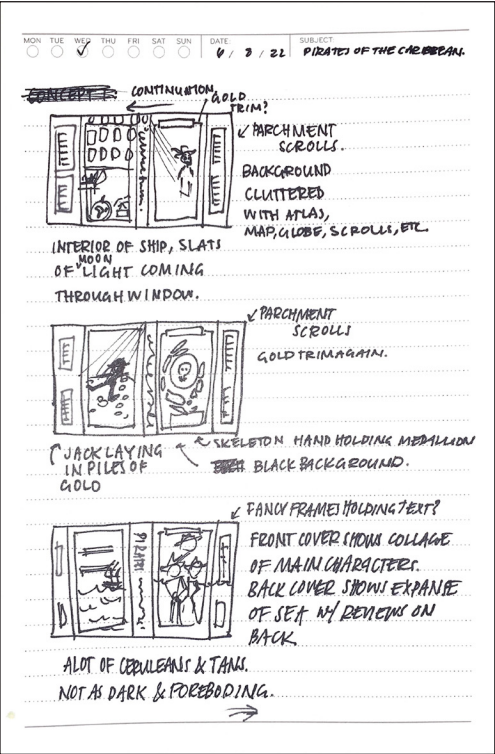 MON TUE WED THU FRI SAT SUN DATE: 6 / 8 / 22 SUBJECT: PIRATES OF THE CARIBBEAN.
CONCEPT 1.
CONTINUATION
GOLD
TRIM?
PARCHMENT
SCROLLS.
BACKGROUND
CLUTTERED
WITH ATLAS,
MAP, GLOBE, SCROLLS, ETC.
INTERIOR OF SHIP, SLATS
OF MOON LIGHT COMING
THROUGH WINDOW.
PARCHMENT
SCROLLS
GOLD TRIM AGAIN.
SKELETON HAND HOLDING MEDALLION
BLACK BACKGROUND.
JACK LAYING
IN PILES OF
GOLD
FANCY FRAMES HOLDING TEXT?
FRONT COVER SHOWS COLLAGE
OF MAIN CHARACTERS.
BACK COVER SHOWS EXPANSE
OF SEA W/ REVIEWS ON
BACK
A LOT OF CERULEANS & TANS.
NOT AS DARK & FOREBODING.